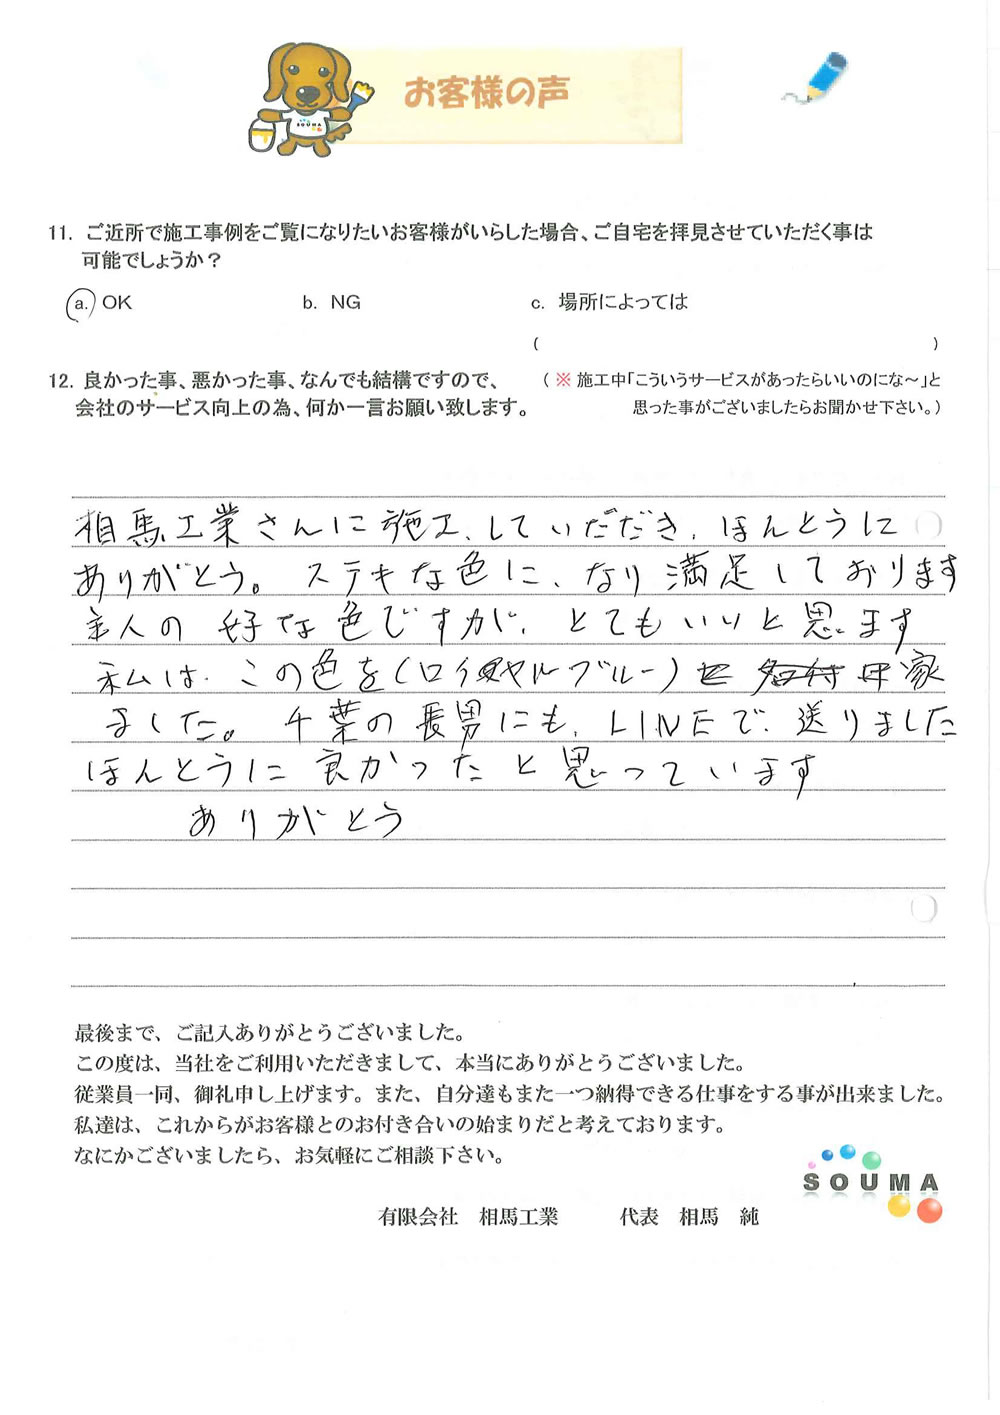 お客様の声
SOUMA
11. ご近所で施工事例をご覧になりたいお客様がいらした場合、ご自宅を拝見させていただく事は
可能でしょうか？
a. OK b. NG c. 場所によっては
( )
12. 良かった事、悪かった事、なんでも結構ですので、 （※ 施工中「こういうサービスがあったらいいのにな～」と
会社のサービス向上の為、何か一言お願い致します。 思った事がございましたらお聞かせ下さい。）
相馬工業さんに施工、していだだき、ほんとうに
ありがとう。ステキな色に、なり満足しております
主人の好きな色ですが、とてもいいと思います
私は、この色を(ロイヤルブルー)
ました。千葉の長男にも、LINEで、送りました
ほんとうに良かったと思っています
ありがとう
最後まで、ご記入ありがとうございました。
この度は、当社をご利用いただきまして、本当にありがとうございました。
従業員一同、御礼申し上げます。また、自分達もまた一つ納得できる仕事をする事が出来ました。
私達は、これからがお客様とのお付き合いの始まりだと考えております。
なにかございましたら、お気軽にご相談下さい。
SOUMA
有限会社 相馬工業 代表 相馬 純